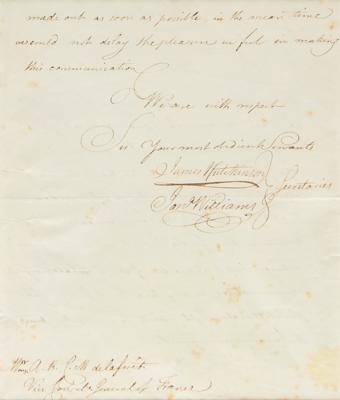 made out as soon as possible, in the mean time
we could not delay the pleasure we feel in making
this communication
We are with respect
Sir Your most obedient Servants
James Hutchinson
Secretaries
Jonª Williams
A. R. C. M. delaforêt
Vice Consul General of France